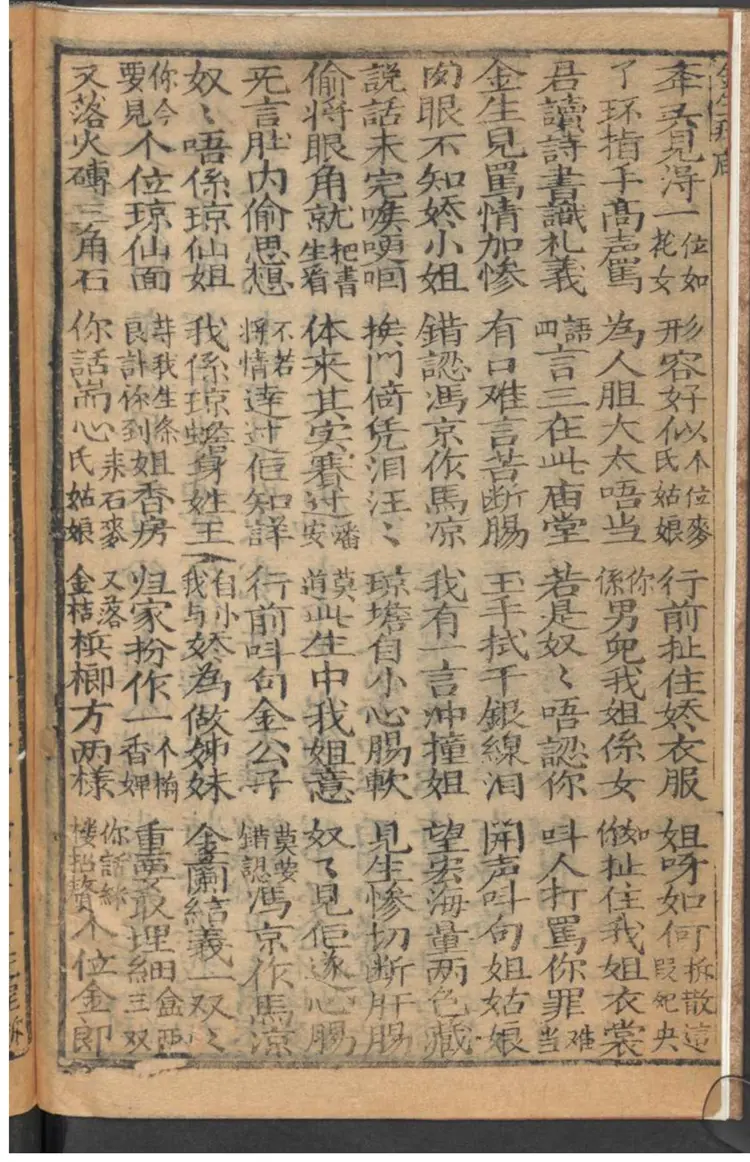 夲头見淂一位如花女 形容好似个位麥氏姑娘 行前扯住娇衣服 姐呀如何拆散這叚央
了环指手高声罵 為人胆大太唔当 你係男兒我姐係女 你如扯住我姐衣裳
君讀詩書識礼義 四語言三在此庙堂 若是奴〻唔認你 呌人打罵你罪难当
金生見罵情加惨 有口难言苦断腸 玉手拭干銀線泪 開声呌句姐姑娘
肉眼不知娇小姐 錯認馮京作馬凉 我有一言冲撞姐 望宏海量两包藏
說話未完喉哽咽 挨門倚凭泪汪〻 琼蟾自小心腸軟 見生惨切断肝腸
偷将眼角就把書生看 体来其实賽过潘安 莫道此生中我姐意 奴〻見佢遂心腸
旡言肚内偷思想 不若将情達过佢知詳 行前呌句金公子 莫要錯認馮京作馬凉
奴〻唔係琼仙姐 我係琼蟾身姓王 自小我与娇為做姊妹 金蘭結義一双〻
你今要見个位琼仙面 等我生条良計你到姐香房 归家扮作一个梹香婢 重要最埋細盒三双
又落火磚三角石 你話耑心来石麥氏姑娘 又落金桔梹榔方两樣 你話綵楼招贅个位金郎